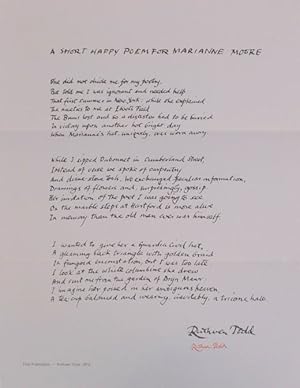 A SHORT HAPPY POEM FOR MARIANNE MOORE
She did not chide me for my poetry,
But told me I was ignorant and needed help
That first summer in New York, while she explained
The Bums lost and so a disaster had to be buried
In today upon another hot bright day
When Marianne's hat, uniquely, was worn away.
While I sipped Dubonnet in Cumberland Street,
Instead of verse we spoke of carpentry
And we exchanged peculiar information,
Drawings of flowers and, surprisingly, gossip.
Her imitation of the poet I was going to see
On the marble steps at Hartford is more alive
In memory than the old man ever was himself.
I wanted to give her a Guardia Civil hat,
A gleaming black triangle with golden braid
In fungoid encrustation, but I was too late
I look at the white columbine she drew
And sent me from the garden of Bryn Mawr.
I imagine her poised in her ambiguous heaven
A tea-cup balanced and wearing, inevitably, a tricorne halo.
Ruthven Todd
Ruthven Todd